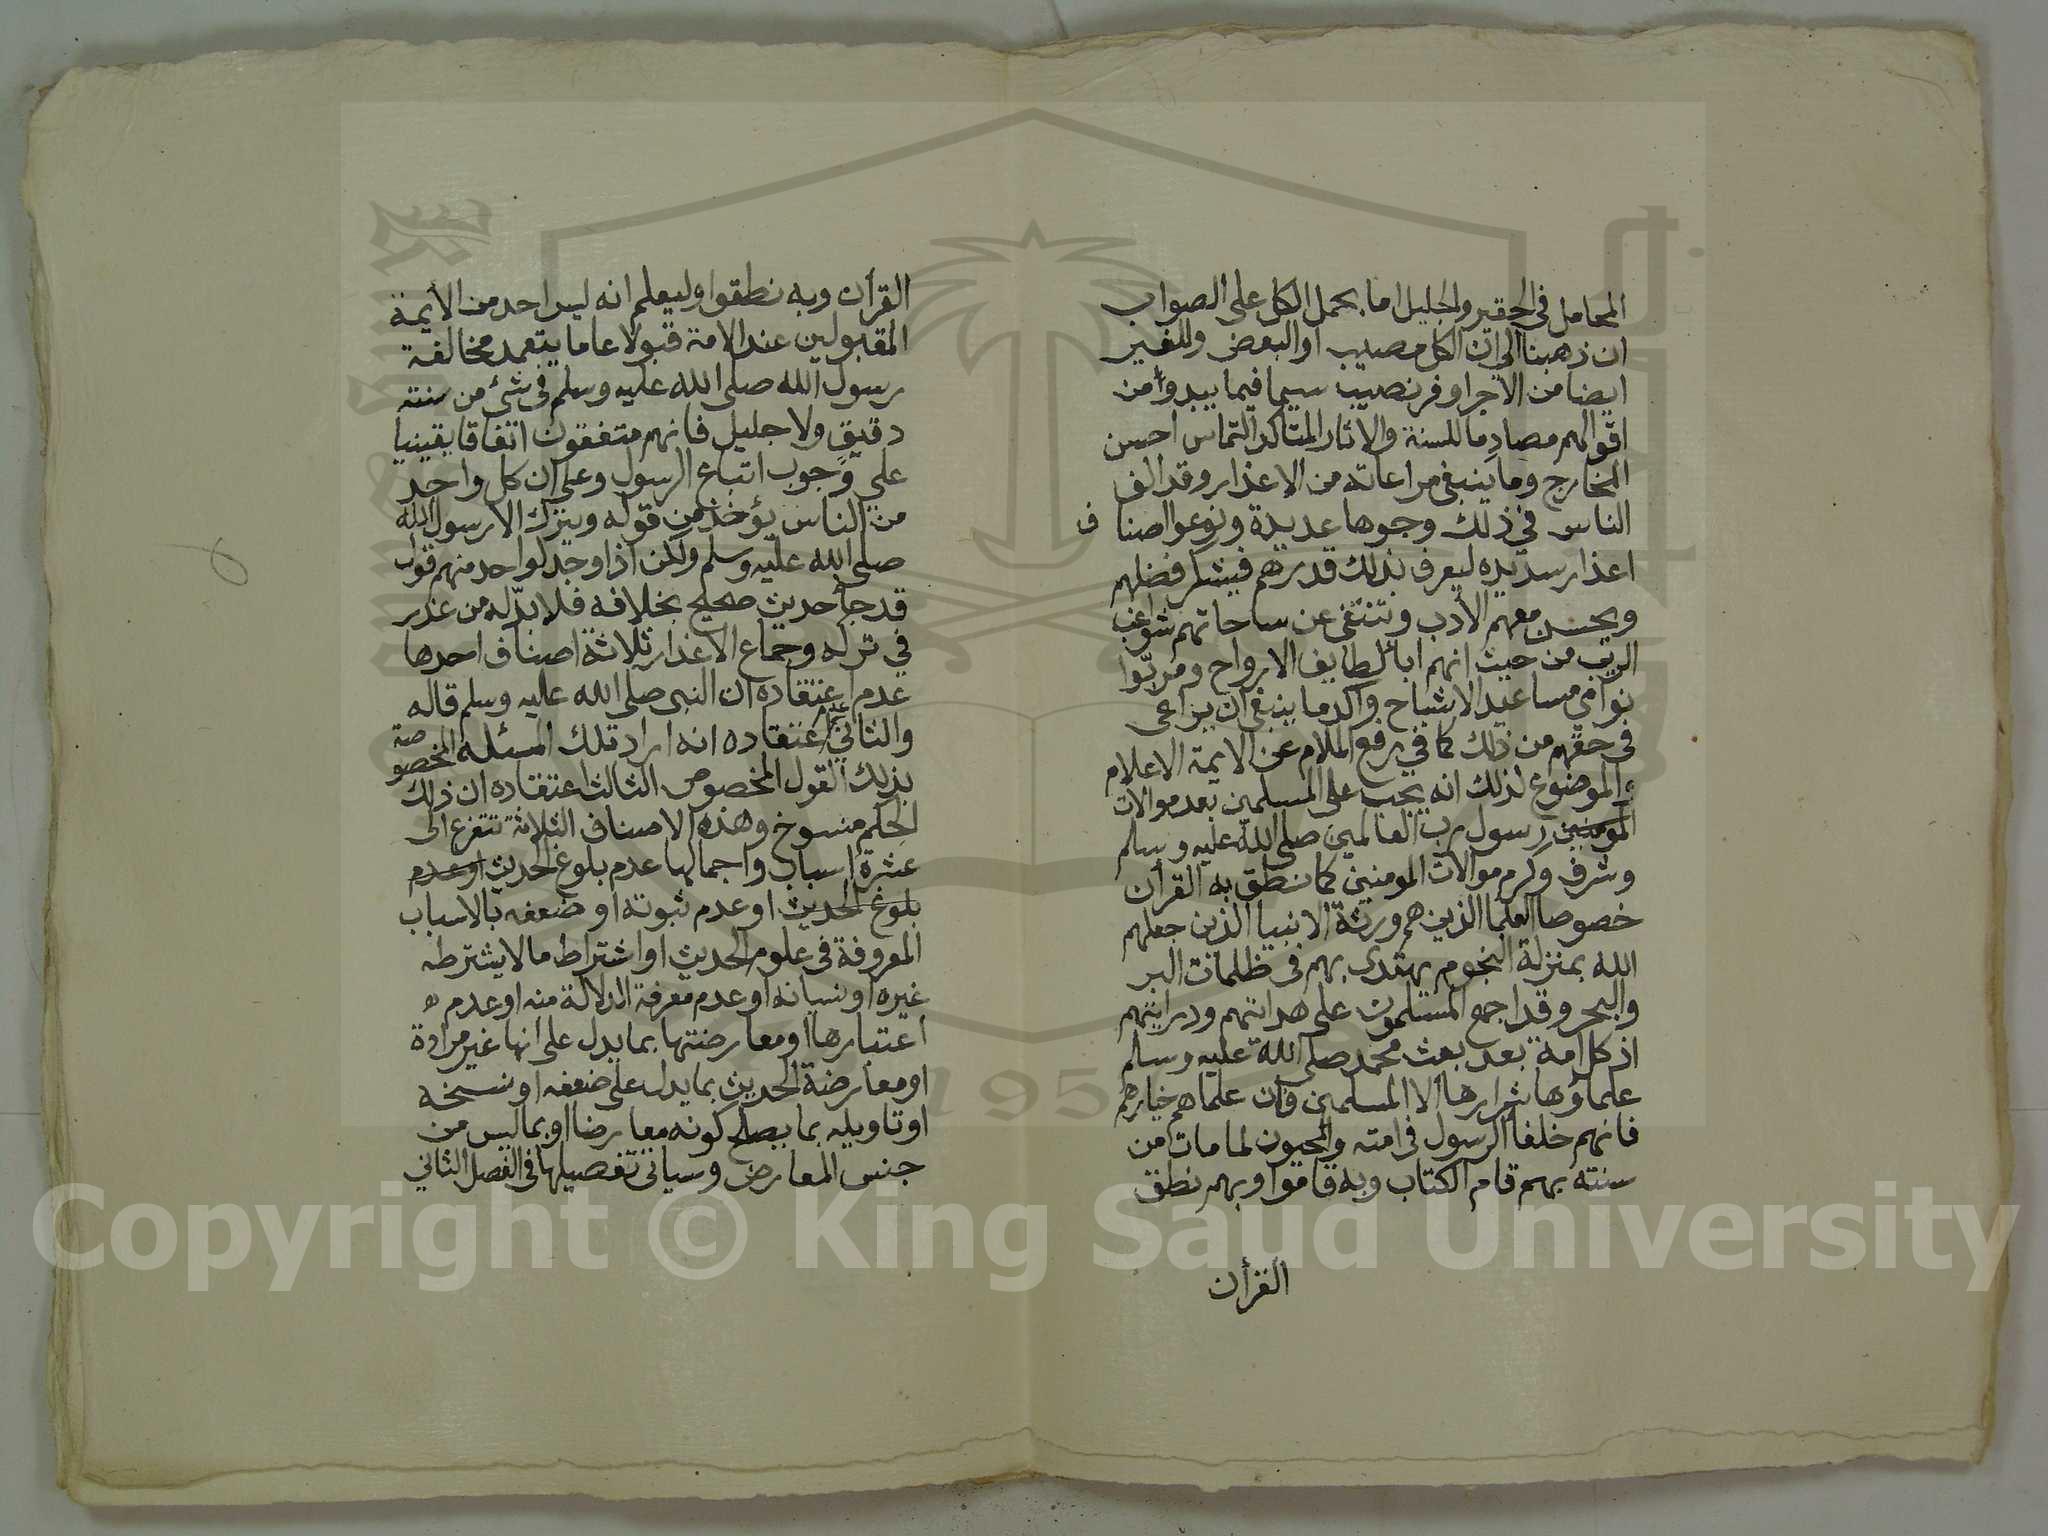 المحامل في الحقير والجليل اما بحمل الكل على الصواب
ان ذهبنا الي ان الكل مصيب او البعض وللغير
ايضا من الاجر اوفر نصيب سيما فيما يبدوا من
اقوالهم مصادما للسنة والاثار المتاكد التماس احسن
المخارج وما ينبغي مراعاته من الاعذار وقد الف
الناس في ذلك وجوها عديدة ونوعوا اصنا ف
اعذار سديده ليعرف بذلك قدرهم فيشكر فضلهم
ويحسن معهم الأدب وتنتفي عن ساحاتهم شوائب
الريب من حيث انهم ابائ لطايف الارواح ومربوا
نوامي مساعيد الاشباح واكد ما ينبغي ان يراعى
في حقهم من ذلك كما في رفع الملام عن الايمة الاعلام
والموضوع لذلك انه يجب على المسلمين بعد موالات
المومنين رسول رب العالمين صلى الله عليه وسلم
وشرف وكرم موالات المومنين كما نطق به القرأن
خصوصا العلما الذين هم ورثة الانبيا الذين جعلهم
الله بمنزلة النجوم يهتدى بهم في ظلمات البر
والبحر وقد اجمع المسلمون على هدايتهم ودرايتهم
اذ كل امة بعد بعث محمد صلى الله عليه وسلم
علماؤها شرارها الا المسلمين فان علماهم خيارهم
فانهم خلفا الرسول في امته والمحيون لما مات من
سنته بهم قام الكتاب وبه قاموا وبهم نطق
القرأن
القرأن وبه نطقوا وليعلم انه ليس احد من الأيمة
المقبولين عند الامة قبولا عاما يتعمد مخالفة
رسول الله صلى الله عليه وسلم في شئ من سنته
دقيق ولا جليل فانهم متفقون اتفاقا يقينيا
على وجوب اتباع الرسول وعلى ان كل واحد
من الناس يؤخذ من قوله ويترك الا رسول الله
صلى الله عليه وسلم ولكن اذا وجد لواحد منهم قول
قد جأ حديث صحيح بخلافه فلا بد له من عذر
في تركه وجماع الاعذار ثلاثة اصناف احدها
عدم اعتقاده ان النبي صلى الله عليه وسلم قاله
والثاني عدم اعتقاده انه اراد تلك المسئلة المخصوصة
بذلك القول المخصوص الثالث اعتقاده ان ذلك
الحكم منسوخ وهذه الاصناف الثلاثة تتفرع الى
عشرة اسباب واجمالها عدم بلوغ الحديث او عدم
بلوغ الحديث او عدم ثبوته او ضعفه بالاسباب
المعروفة في علوم الحديث او اشتراط ما لا يشترطه
غيره او نسيانه او عدم معرفة الدلالة منه او عدم
اعتبارها او معارضتها بما يدل على انها غير مرادة
او معارضة الحديث بما يدل على ضعفه او نسخه
او تاويله بما يصلح كونه معارضا او بما ليس من
جنس المعارض وسياتي تفصيلها في الفصل الثاني
Copyright © King Saud University
195